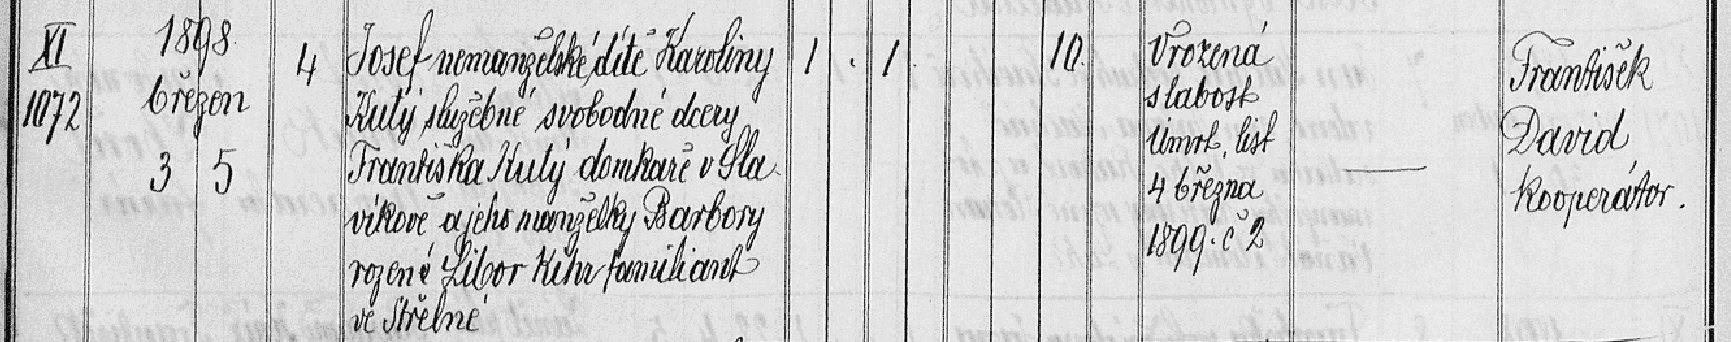 XI
1072
1898
březen
3 5
4
Josef nemanželské dítě Karoliny
Kutý služebné svobodné dcery
Františka Kutý domkaře v Sla
víkově a jeho manželky Barbory
rozené Libor familiant
ve Střelné
1 . 1.
10.
Vrozená
slabost
úmrt. list
4 března
1899. č 2
František
David
kooperátor.